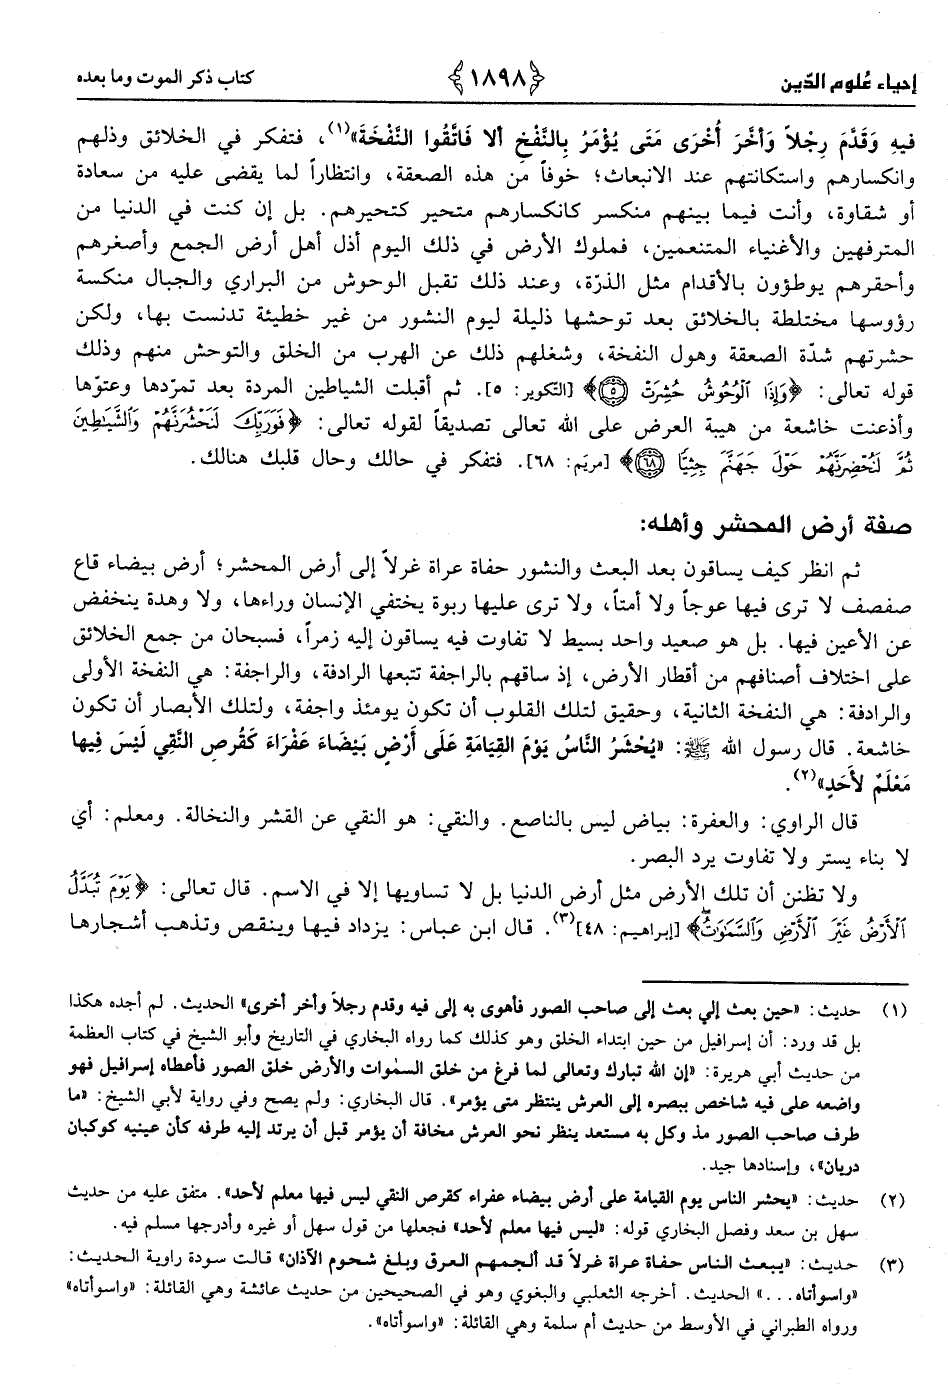 إحياء عُلوم الدّين
﴿١٨٩٨﴾
كتاب ذكر الموت وما بعده
فيهِ وَقَدَّمَ رِجْلاً وَأَخَّرَ أُخْرَى مَتَى يُؤْمَرُ بِالنَّفْخِ أَلا فَاتَّقُوا النَّفْخَةَ»(١)، فتفكر في الخلائق وذلهم
وانكسارهم واستكانتهم عند الانبعاث؛ خوفاً من هذه الصعقة، وانتظاراً لما يقضى عليه من سعادة
أو شقاوة، وأنت فيما بينهم منكسر كانكسارهم متحير كتحيرهم. بل إن كنت في الدنيا من
المترفهين والأغنياء المتنعمين، فملوك الأرض في ذلك اليوم أذل أهل أرض الجمع وأصغرهم
وأحقرهم يوطؤون بالأقدام مثل الذرّة، وعند ذلك تقبل الوحوش من البراري والجبال منكسة
رؤوسها مختلطة بالخلائق بعد توحشها ذليلة ليوم النشور من غير خطيئة تدنست بها، ولكن
حشرتهم شدّة الصعقة وهول النفخة، وشغلهم ذلك عن الهرب من الخلق والتوحش منهم وذلك
قوله تعالى: ﴿وَإِذَا ٱلْوُحُوشُ حُشِرَتْ ۝٥﴾ [التّكوير: ٥]. ثم أقبلت الشياطين المردة بعد تمرّدها وعتوّها
وأذعنت خاشعة من هيبة العرض على الله تعالى تصديقاً لقوله تعالى: ﴿فَوَرَبِّكَ لَنَحْشُرَنَّهُمْ وَٱلشَّيَٰطِينَ
ثُمَّ لَنُحْضِرَنَّهُمْ حَوْلَ جَهَنَّمَ جِثِيًّا ۝٦٨﴾ [مريَم: ٦٨]. فتفكر في حالك وحال قلبك هنالك.
صفة أرض المحشر وأهله:
ثم انظر كيف يساقون بعد البعث والنشور حفاة عراة غرلاً إلى أرض المحشر؛ أرض بيضاء قاع
صفصف لا ترى فيها عوجاً ولا أمتاً، ولا ترى عليها ربوة يختفي الإنسان وراءها، ولا وهدة ينخفض
عن الأعين فيها. بل هو صعيد واحد بسيط لا تفاوت فيه يساقون إليه زمراً، فسبحان من جمع الخلائق
على اختلاف أصنافهم من أقطار الأرض، إذ ساقهم بالراجفة تتبعها الرادفة، والراجفة: هي النفخة الأولى
والرادفة: هي النفخة الثانية، وحقيق لتلك القلوب أن تكون يومئذ واجفة، ولتلك الأبصار أن تكون
خاشعة. قال رسول الله ﷺ: «يُحْشَرُ النَّاسُ يَوْمَ القِيَامَةِ عَلَى أَرْضٍ بَيْضَاءَ عَفْرَاءَ كَقُرصِ النَّقِي لَيْسَ فِيها
مَعْلَمٌ لأَحَدٍ»(٢).
قال الراوي: والعفرة: بياض ليس بالناصع. والنقي: هو النقي عن القشر والنخالة. ومعلم: أي
لا بناء يستر ولا تفاوت يرد البصر.
ولا تظنن أن تلك الأرض مثل أرض الدنيا بل لا تساويها إلا في الاسم. قال تعالى: ﴿يَوْمَ تُبَدَّلُ
ٱلْأَرْضُ غَيْرَ ٱلْأَرْضِ وَٱلسَّمَٰوَٰتُۖ﴾ [إبراهيم: ٤٨](٣). قال ابن عباس: يزداد فيها وينقص وتذهب أشجارها
(١) حديث: «حين بعث إلي بعث إلى صاحب الصور فأهوى به إلى فيه وقدم رجلاً وأخر أخرى» الحديث. لم أجده هكذا
بل قد ورد: أن إسرافيل من حين ابتداء الخلق وهو كذلك كما رواه البخاري في التاريخ وأبو الشيخ في كتاب العظمة
من حديث أبي هريرة: «إن الله تبارك وتعالى لما فرغ من خلق السمٰوات والأرض خلق الصور فأعطاه إسرافيل فهو
واضعه على فيه شاخص ببصره إلى العرش ينتظر متى يؤمر». قال البخاري: ولم يصح وفي رواية لأبي الشيخ: «ما
طرف صاحب الصور مذ وكل به مستعد ينظر نحو العرش مخافة أن يؤمر قبل أن يرتد إليه طرفه كأن عينيه كوكبان
دريان»، وإسنادها جيد.
(٢) حديث: «يحشر الناس يوم القيامة على أرض بيضاء عفراء كقرص النقي ليس فيها معلم لأحد». متفق عليه من حديث
سهل بن سعد وفصل البخاري قوله: «ليس فيها معلم لأحد» فجعلها من قول سهل أو غيره وأدرجها مسلم فيه.
(٣) حديث: «يبعث الناس حفاة عراة غرلاً قد ألجمهم العرق وبلغ شحوم الآذان» قالت سودة راوية الحديث:
«واسوأتاه...» الحديث. أخرجه الثعلبي والبغوي وهو في الصحيحين من حديث عائشة وهي القائلة: «واسوأتاه»
ورواه الطبراني في الأوسط من حديث أم سلمة وهي القائلة: «واسوأتاه».